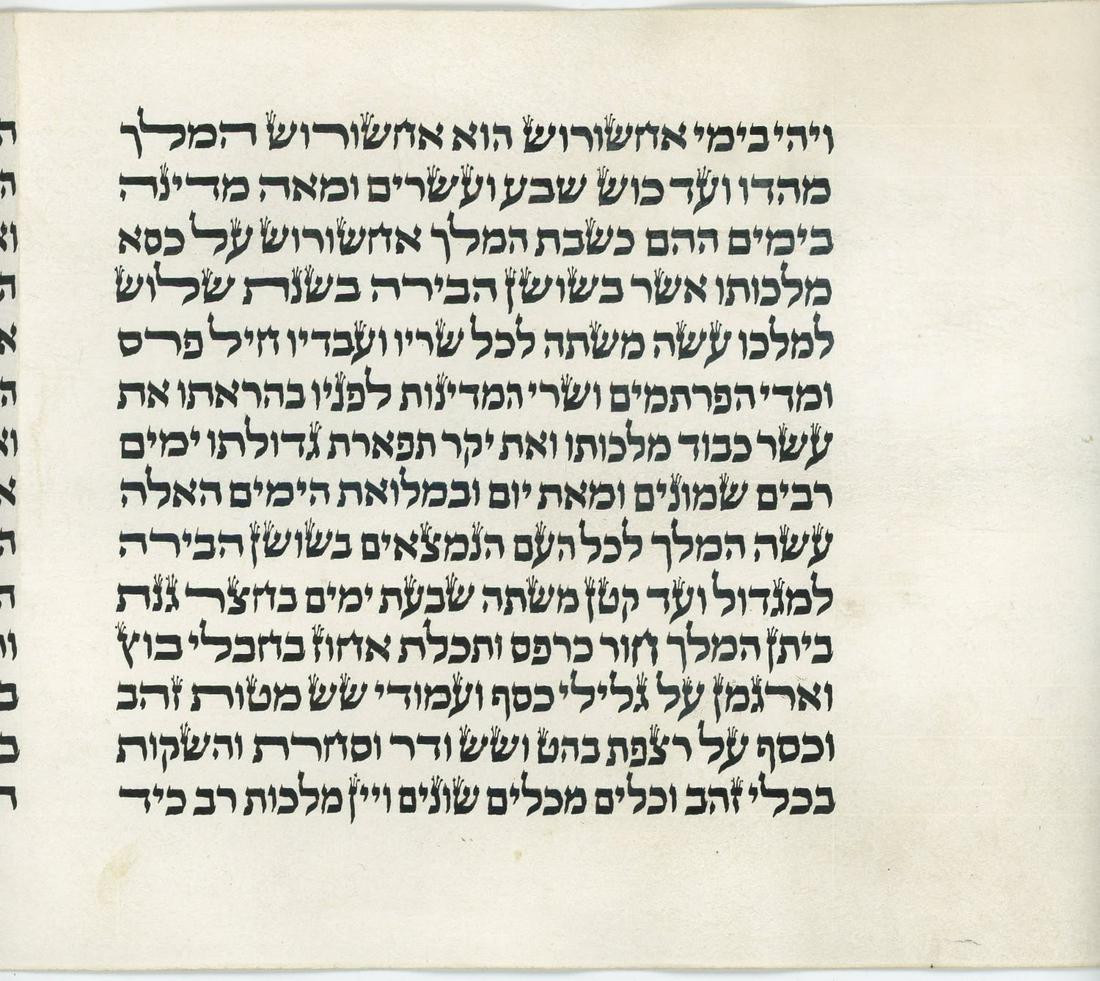 ויהי בימי אחשורוש הוא אחשורוש המלך
מהדו ועד כוש שבע ועשרים ומאה מדינה
בימים ההם כשבת המלך אחשורוש על כסא
מלכותו אשר בשושן הבירה בשנת שלוש
למלכו עשה משתה לכל שריו ועבדיו חיל פרס
ומדי הפרתמים ושרי המדינות לפניו בהראתו את
עשר כבוד מלכותו ואת יקר תפארת גדולתו ימים
רבים שמונים ומאת יום ובמלואת הימים האלה
עשה המלך לכל העם הנמצאים בשושן הבירה
למגדול ועד קטן משתה שבעת ימים בחצר גנת
ביתן המלך חור כרפס ותכלת אחוז בחבלי בוץ
וארגמן על גלילי כסף ועמודי שש מטות זהב
וכסף על רצפת בהט ושש ודר וסחרת והשקות
בכלי זהב וכלים מכלים שונים ויין מלכות רב כיד